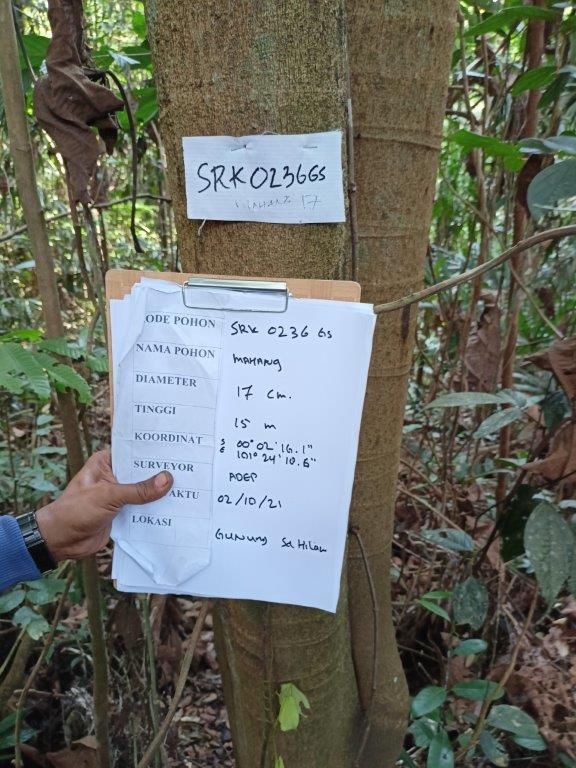 SRK 0236 GS
MAHANG 17
KODE POHON SRK 0236 GS
NAMA POHON MAHANG
DIAMETER 17 cm.
TINGGI 15 m
KOORDINAT S 00° 02' 16.1"
E 101° 24' 10.6"
SURVEYOR ADEP
AKTU 02/10/21
LOKASI GUNUNG SAHILAN